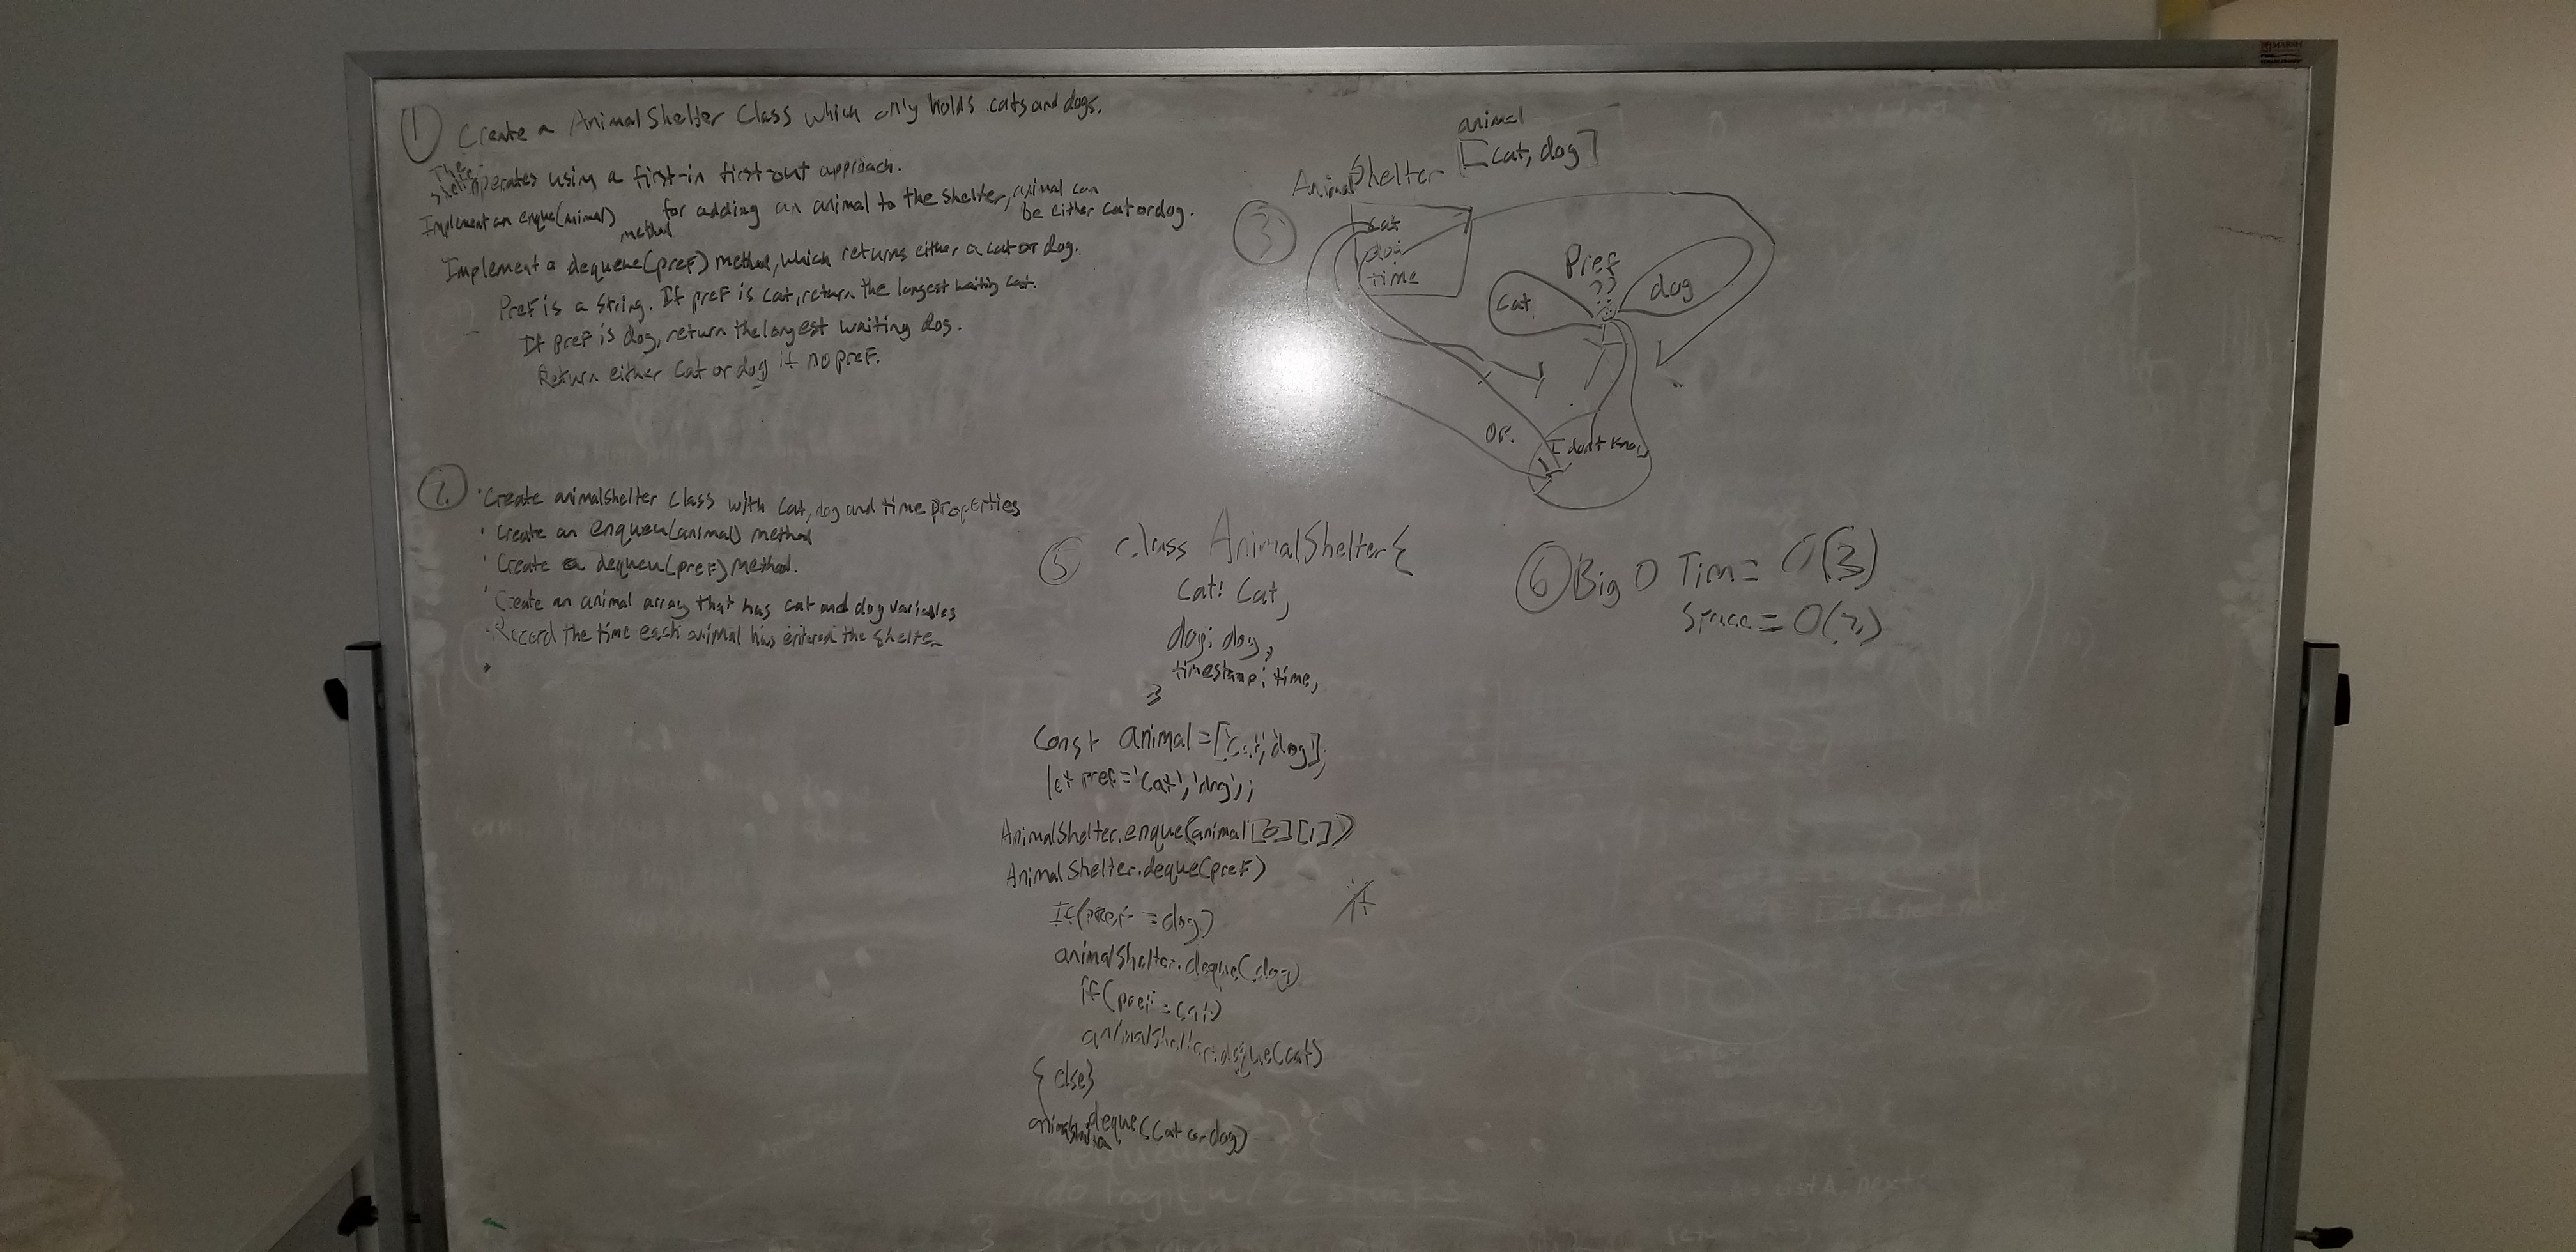 ① Create a AnimalShelter Class which only holds cats and dogs.
The shelter operates using a first-in first-out approach.
Implement an enque(animal) method for adding an animal to the shelter, animal can be either cat or dog.
Implement a dequeue(pref) method, which returns either a cat or dog.
Pref is a string. If pref is cat, return the longest waiting cat.
If pref is dog, return the longest waiting dog.
Return either cat or dog if no pref.
2.
· Create animalshelter class with cat, dog and time properties
· Create an enqueu(animal) method
· Create a dequeu(pref) method.
· Create an animal array that has cat and dog variables
· Record the time each animal has entered the shelter
·
③
animal
AnimalShelter [cat, dog]
cat
dog
time
Pref
??
cat
dog
or.
I don't know
⑤ class AnimalShelter {
cat: cat,
dog: dog,
timestamp: time,
}
const animal = ['cat', 'dog'];
let pref = 'cat', 'dog';
AnimalShelter.enque(animal[0][1])
AnimalShelter.deque(pref)
If(pref = dog)
animalShelter.deque(dog)
if(pref = cat)
animalShelter.deque(cat)
{else}
animalshelter deque(cat or dog)
⑥ Big O Tim = O(3)
Space = O(2)